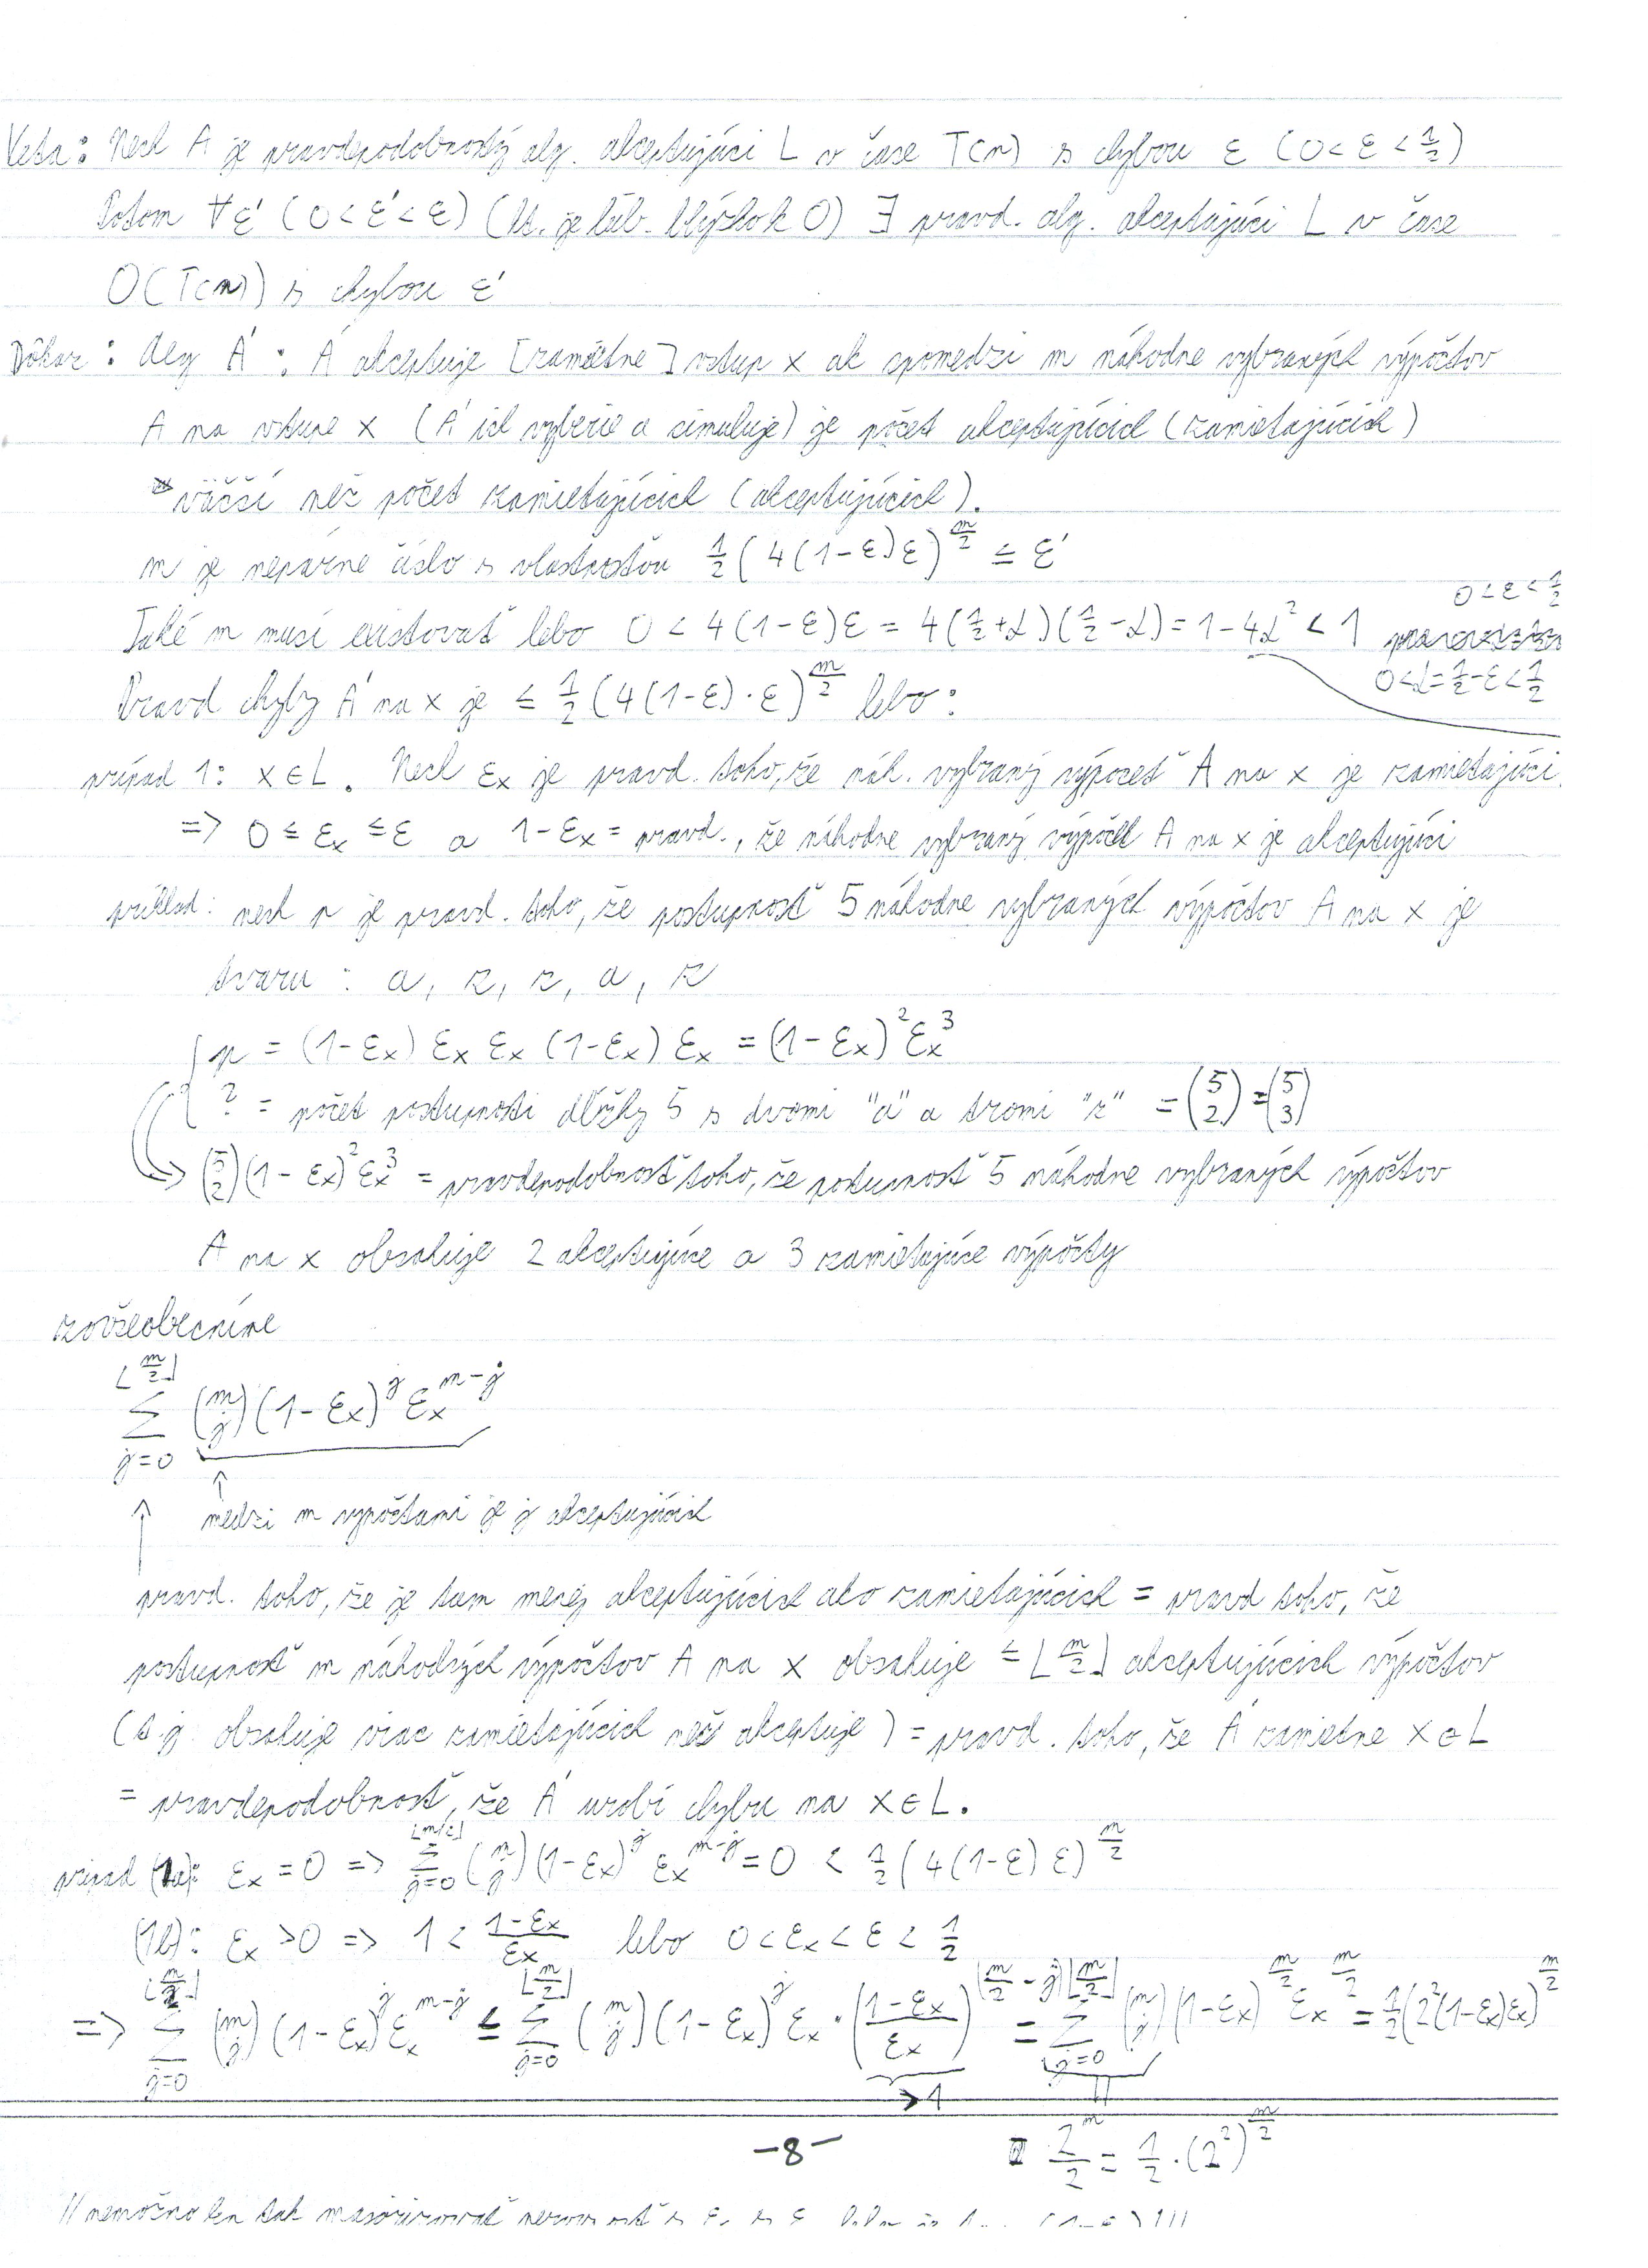 Veta: Nech A je pravdepodobnostný alg. akceptujúci L v čase T(n) s chybou ε (0 < ε < 1/2)
Potom ∀ε' (0 < ε' < ε) (t.j. je ľub. blízko k 0) ∃ pravd. alg. akceptujúci L v čase
O(T(n)) s chybou ε'
Dôkaz: Alg A': A' akceptuje [zamietne] vstup x ak spomedzi m náhodne vybraných výpočtov
A na vstupe x (A' ich vyberie a simuluje) je počet akceptujúcich (zamietajúcich)
väčší než počet zamietajúcich (akceptujúcich).
m je nepárne číslo s vlastnosťou 1/2 (4(1-ε)ε)^{m/2} ≤ ε'
0 < ε < 1/2
Také m musí existovať lebo 0 < 4(1-ε)ε = 4(1/2+α)(1/2-α) = 1-4α² < 1
0<α=1/2-ε<1/2
Pravd chyby A' na x je ≤ 1/2 (4(1-ε)·ε)^{m/2} lebo:
prípad 1: x∈L. Nech εx je pravd. toho, že náh. vybraný výpočet A na x je zamietajúci.
=> 0 ≤ εx ≤ ε a 1-εx = pravd., že náhodne vybraný výpočet A na x je akceptujúci
príklad: nech p je pravd. toho, že postupnosť 5 náhodne vybraných výpočtov A na x je
tvaru: a, z, z, a, z
p = (1-εx) εx εx (1-εx) εx = (1-εx)² εx³
? = počet postupností dĺžky 5 s dvomi "a" a tromi "z" = (5 2) = (5 3)
(5 2)(1-εx)² εx³ = pravdepodobnosť toho, že postupnosť 5 náhodne vybraných výpočtov
A na x obsahuje 2 akceptujúce a 3 zamietajúce výpočty
zovšeobecníme
∑_{j=0}^{⌊m/2⌋} (m j)(1-εx)^j εx^{m-j}
medzi m výpočtami je j akceptujúcich
pravd. toho, že je tam menej akceptujúcich ako zamietajúcich = pravd toho, že
postupnosť m náhodných výpočtov A na x obsahuje ≤ ⌊m/2⌋ akceptujúcich výpočtov
(t.j. obsahuje viac zamietajúcich než akceptuje) = pravd. toho, že A' zamietne x∈L
= pravdepodobnosť, že A' urobí chybu na x∈L.
prípad (1a): εx = 0 => ∑_{j=0}^{⌊m/2⌋} (m j)(1-εx)^j εx^{m-j} = 0 < 1/2 (4(1-ε)ε)^{m/2}
(1b): εx > 0 => 1 < (1-εx)/εx lebo 0<εx<ε<1/2
=> ∑_{j=0}^{⌊m/2⌋} (m j)(1-εx)^j εx^{m-j} ≤ ∑_{j=0}^{⌊m/2⌋} (m j)(1-εx)^j εx · ((1-εx)/εx)^{m/2-j} = ∑_{j=0}^{⌊m/2⌋} (m j)(1-εx)^{m/2} εx^{m/2} = 1/2(2²(1-εx)εx)^{m/2}
>1
-8-
2^m/2 = 1/2·(2²)^{m/2}
// nemožno len tak majorizovať nerovnosť s